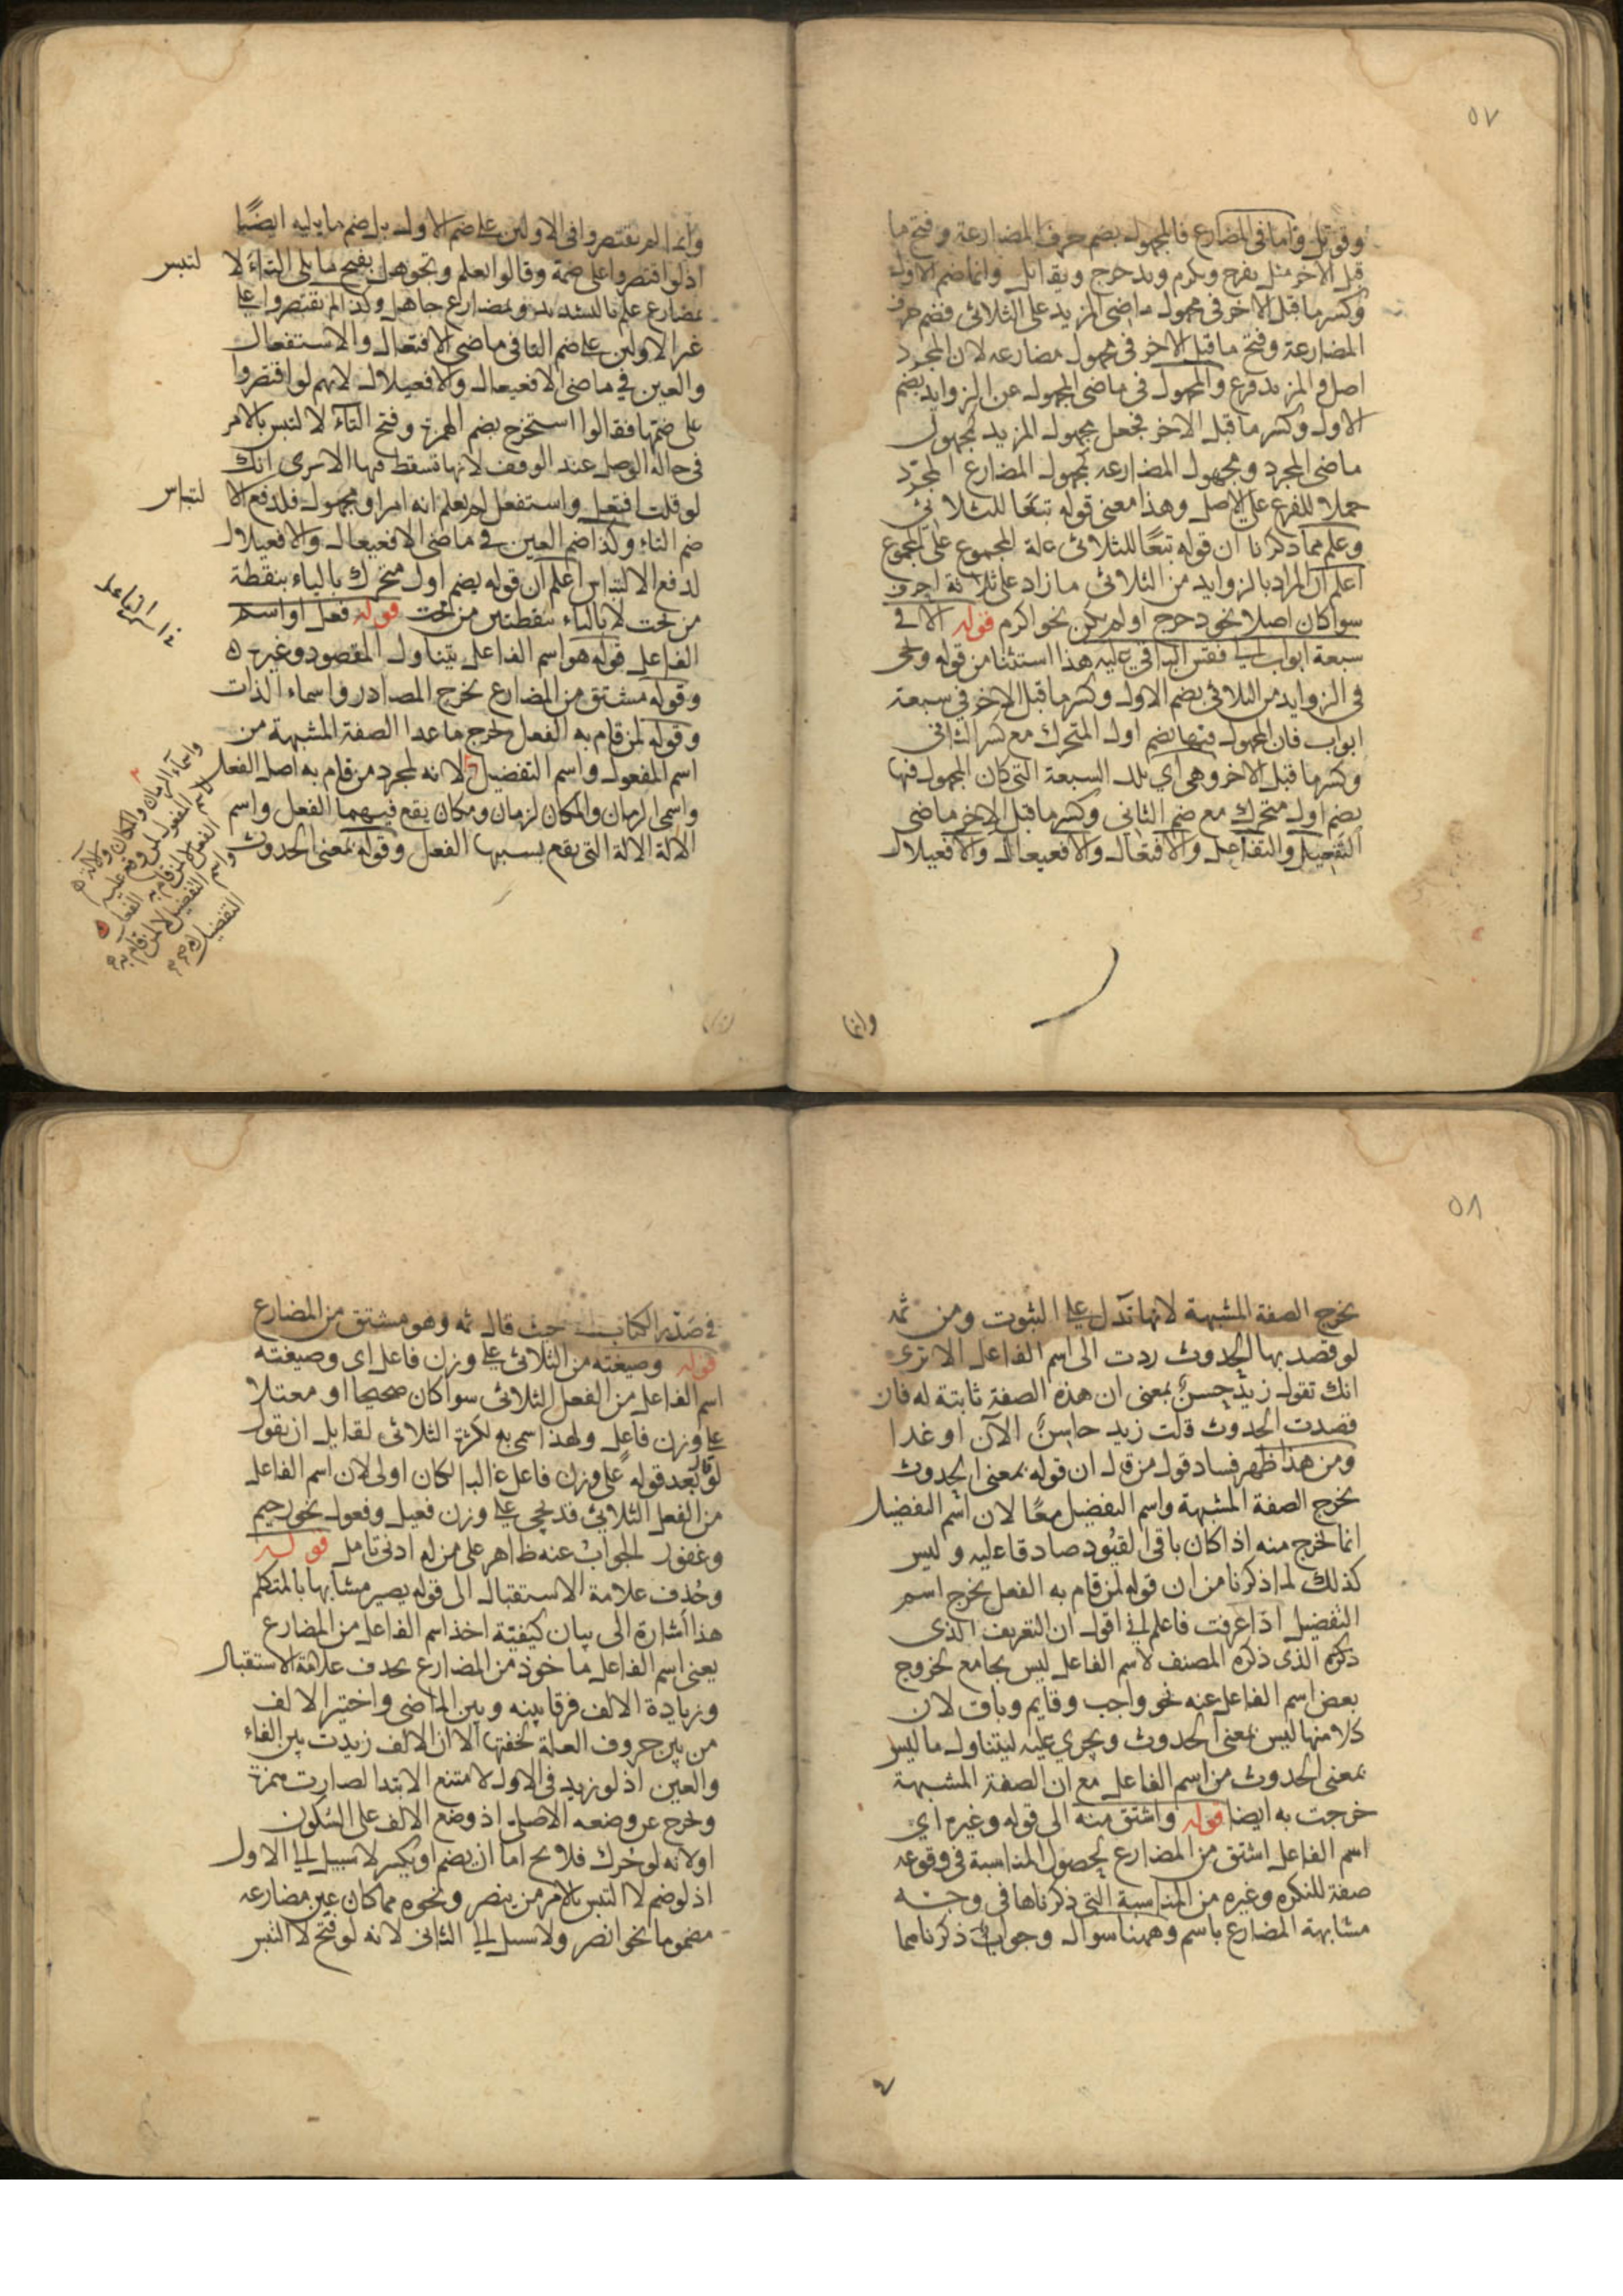 ٥٧
وقوتل واما في المضارع فالمجهول بضم حرف المضارعة وفتح ما
قبل الاخر مثل يفرح ويكرم ويدحرج ويقابل وانما ضم الاول
وكسر ما قبل الاخر في مجهول ماضي المزيد على الثلاثي فضم حرف
المضارعة وفتح ما قبل الاخر في مجهول مضارعه لان المجرد
اصل والمزيد فرع والمجهول في ماضي المجهول عن الزوايد بضم
الاول وكسر ما قبل الاخر فجعل مجهول المزيد كمجهول
ماضي المجرد ومجهول المضارعه كمجهول المضارع المجرد
حملا للفرع على الاصل وهذا معنى قوله تبعًا للثلاثي
وعلم مما ذكرنا ان قوله تبعًا للثلاثي علة المجموع على المجموع
اعلم ان المراد بالزوايد من الثلاثي ما زاد على ثلاثة احرف
سوا كان اصلا نحو دحرج او لم يكن نحو اكرم قوله الا في
سبعة ابواب الى فقس الباقي عليه هذا استثنا من قوله ونحى
في الزوايد من الثلاثي بضم الاول وكسر ما قبل الاخر في سبعة
ابواب فان المجهول فيها بضم اول المتحرك مع كسر الثاني
وكسر ما قبل الاخر وهي اي تلك السبعة التي كان المجهول فيها
بضم اول متحرك مع ضم الثاني وكسر ما قبل الاخر ماضي
التفعيل والتفاعل والافتعال والافعيعال والافعيلال
وانما
وانما لم يقتصروا في الاولين على ضم الاول بل ضم ما يليه ايضًا
اذ لو اقتصروا على ضمة وقالوا تعلم وتجوهل بفتح ما يلي التاء لا
لتبس
بمضارع علم بالتشديد وبمضارع جاهل وكذا لم يقتصروا على
غير الاولين على ضم التا في ماضي الافتعال والاستفعال
والعين في ماضي الافعيعال والافعيلال لانهم لو اقتصروا
على ضمتها فقالوا استخرج بضم الهمزة وفتح التاء لالتبس بالامر
في حالة الوصل عند الوقف لانها تسقط فيها الا ترى انك
لو قلت افتعل واستفعل لم يعلم انه امر او مجهول فلدفع الا
لتباس
ضم التاء وكذا ضم العين في ماضي الافعيعال والافعيلال
لدفع الالتباس اعلم ان قوله بضم اول متحرك بالباء بنقطة
من تحت لا بالياء بنقطتين من تحت قوله فعل او اسم
الفاعل قوله هو اسم الفاعل يتناول المقصود وغيره
وقوله مشتق من المضارع يخرج المصادر واسماء الذات
وقوله لمن قام به الفعل يخرج ما عدا الصفة المشبهة من
اسم المفعول واسم التفضيل لانه لمجرد من قام به اصل الفعل
واسمي الزمان والمكان لزمان ومكان يقع فيهما الفعل واسم
الالة الالة التي يقع بسببها الفعل وقوله بمعنى الحدوث
واسماء الزمان والمكان والالة
٥٨
يخرج الصفة المشبهة لانها تدل على الثبوت ومن ثمه
لو قصد بها الحدوث ردت الى اسم الفاعل الا ترى
انك تقول زيد حسن بمعنى ان هذه الصفة ثابتة له فان
قصدت الحدوث قلت زيد حاسن الآن او غدا
ومن هذا ظهر فساد قول من قال ان قوله بمعنى الحدوث
يخرج الصفة المشبهة واسم التفضيل معًا لان اسم التفضيل
انما يخرج منه اذا كان باقي القيود صادقا عليه وليس
كذلك لما ذكرنا من ان قوله لمن قام به الفعل يخرج اسم
التفضيل اذا عرفت فاعلم اني اقول ان التعريف الذي
ذكره الذي ذكره المصنف لاسم الفاعل ليس بجامع لخروج
بعض اسم الفاعل عنه نحو واجب وقايم وباق لان
كلا منها ليس بمعنى الحدوث ويجري عليه ليتناول ما ليس
بمعنى الحدوث من اسم الفاعل مع ان الصفة المشبهة
خرجت به ايضا قوله واشتق منه الى قوله وغيره اي
اسم الفاعل اشتق من المضارع لحصول المناسبة في وقوعه
صفة للنكره وغيره من المناسبة التي ذكرناها في وجه
مشابهة المضارع باسم وههنا سوال وجواب ذكرناهما
في صدر الكتاب حيث قال ثمه وهو مشتق من المضارع
قوله وصيغته من الثلاثي على وزن فاعل اي وصيغته
اسم الفاعل من الفعل الثلاثي سوا كان صحيحا او معتلا
على وزن فاعل ولهذا سمي به لكثرة الثلاثي لقايل ان يقول
لو قال بعد قوله على وزن فاعل غالبا لكان اولى لان اسم الفاعل
من الفعل الثلاثي قد يجي على وزن فعيل وفعول نحو رحيم
وغفور الجواب عنه ظاهر على من له ادنى تامل قوله
وحذف علامة الاستقبال الى قوله يصير مشابها بالمتكلم
هذا اشارة الى بيان كيفية اخذ اسم الفاعل من المضارع
يعني اسم الفاعل ماخوذ من المضارع بحذف علامة الاستقبال
وزيادة الالف فرقا بينه وبين الماضي واختير الالف
من بين حروف العلة لخفتها الا ان الالف زيدت بين الفاء
والعين اذ لو زيد في الاول لامتنع الابتدا لصارت همزة
وخرج عن وضعه الاصلي اذ وضع الالف على السكون
اولانه لو حرك فلا يخ اما ان يضم او يكسر لا سبيل الى الاول
اذ لو ضم لالتبس بالامر من ينصر ونحوه مما كان عين مضارعه
مضموما نحو انصر ولا سبيل الى الثاني لانه لو فتح لالتبس